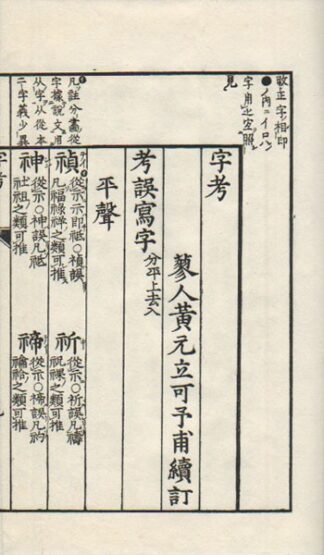 ●ノ內ニイロハノ
字用之空照
見
改正字相印
字考
蓼人黃元立可予甫續訂
考誤寫字分平上去入
平聲
禎從示示即祗○禎誤
凡福祿祥之類可推
祈從示○祈誤凡禱
祝祼之類可推
神從示○神誤凡祗
社祖之類可推
禘從示○禘誤凡礿
禬祫之類可推
凡註分畫從
字據說文用
从字从從本
二字義少異
字考